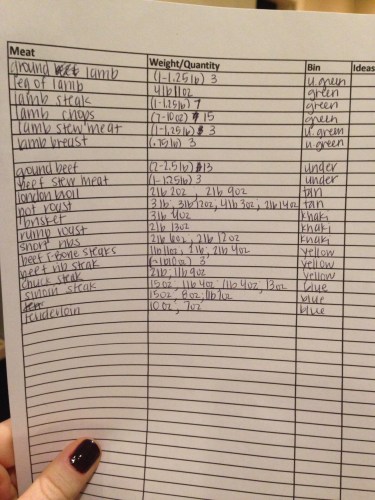 Meat Weight/Quantity Bin Ideas
ground lamb (1-1.25lb) 3 u.green
leg of lamb 4lb11oz green
lamb steak (1-1.25lb) 7 green
lamb chops (7-10oz) 15 green
lamb stew meat (1-1.25lb) 3 u.green
lamb breast (.75lb) 3 u.green
ground beef (2-2.5lb) 13 under
beef stew meat (1-1.25lb) 3 under
london broil 2lb 2oz, 2lb 9oz tan
pot roast 3lb, 3lb 12oz, 4lb 3oz, 2lb 14oz tan
brisket 3lb 4oz khaki
rump roast 2lb 13oz khaki
short ribs 2lb 6oz, 2lb 12oz khaki
beef T-Bone steaks 1lb 11oz, 2lb, 2lb 4oz yellow
beef rib steak 3 yellow
chuck steak 2lb, 1lb 9oz yellow
sirloin steak 15oz, 11lb 4oz, 11lb 4oz, 13oz blue
15oz, 8oz, 1lb 7oz blue
tenderloin 10oz, 7oz blue